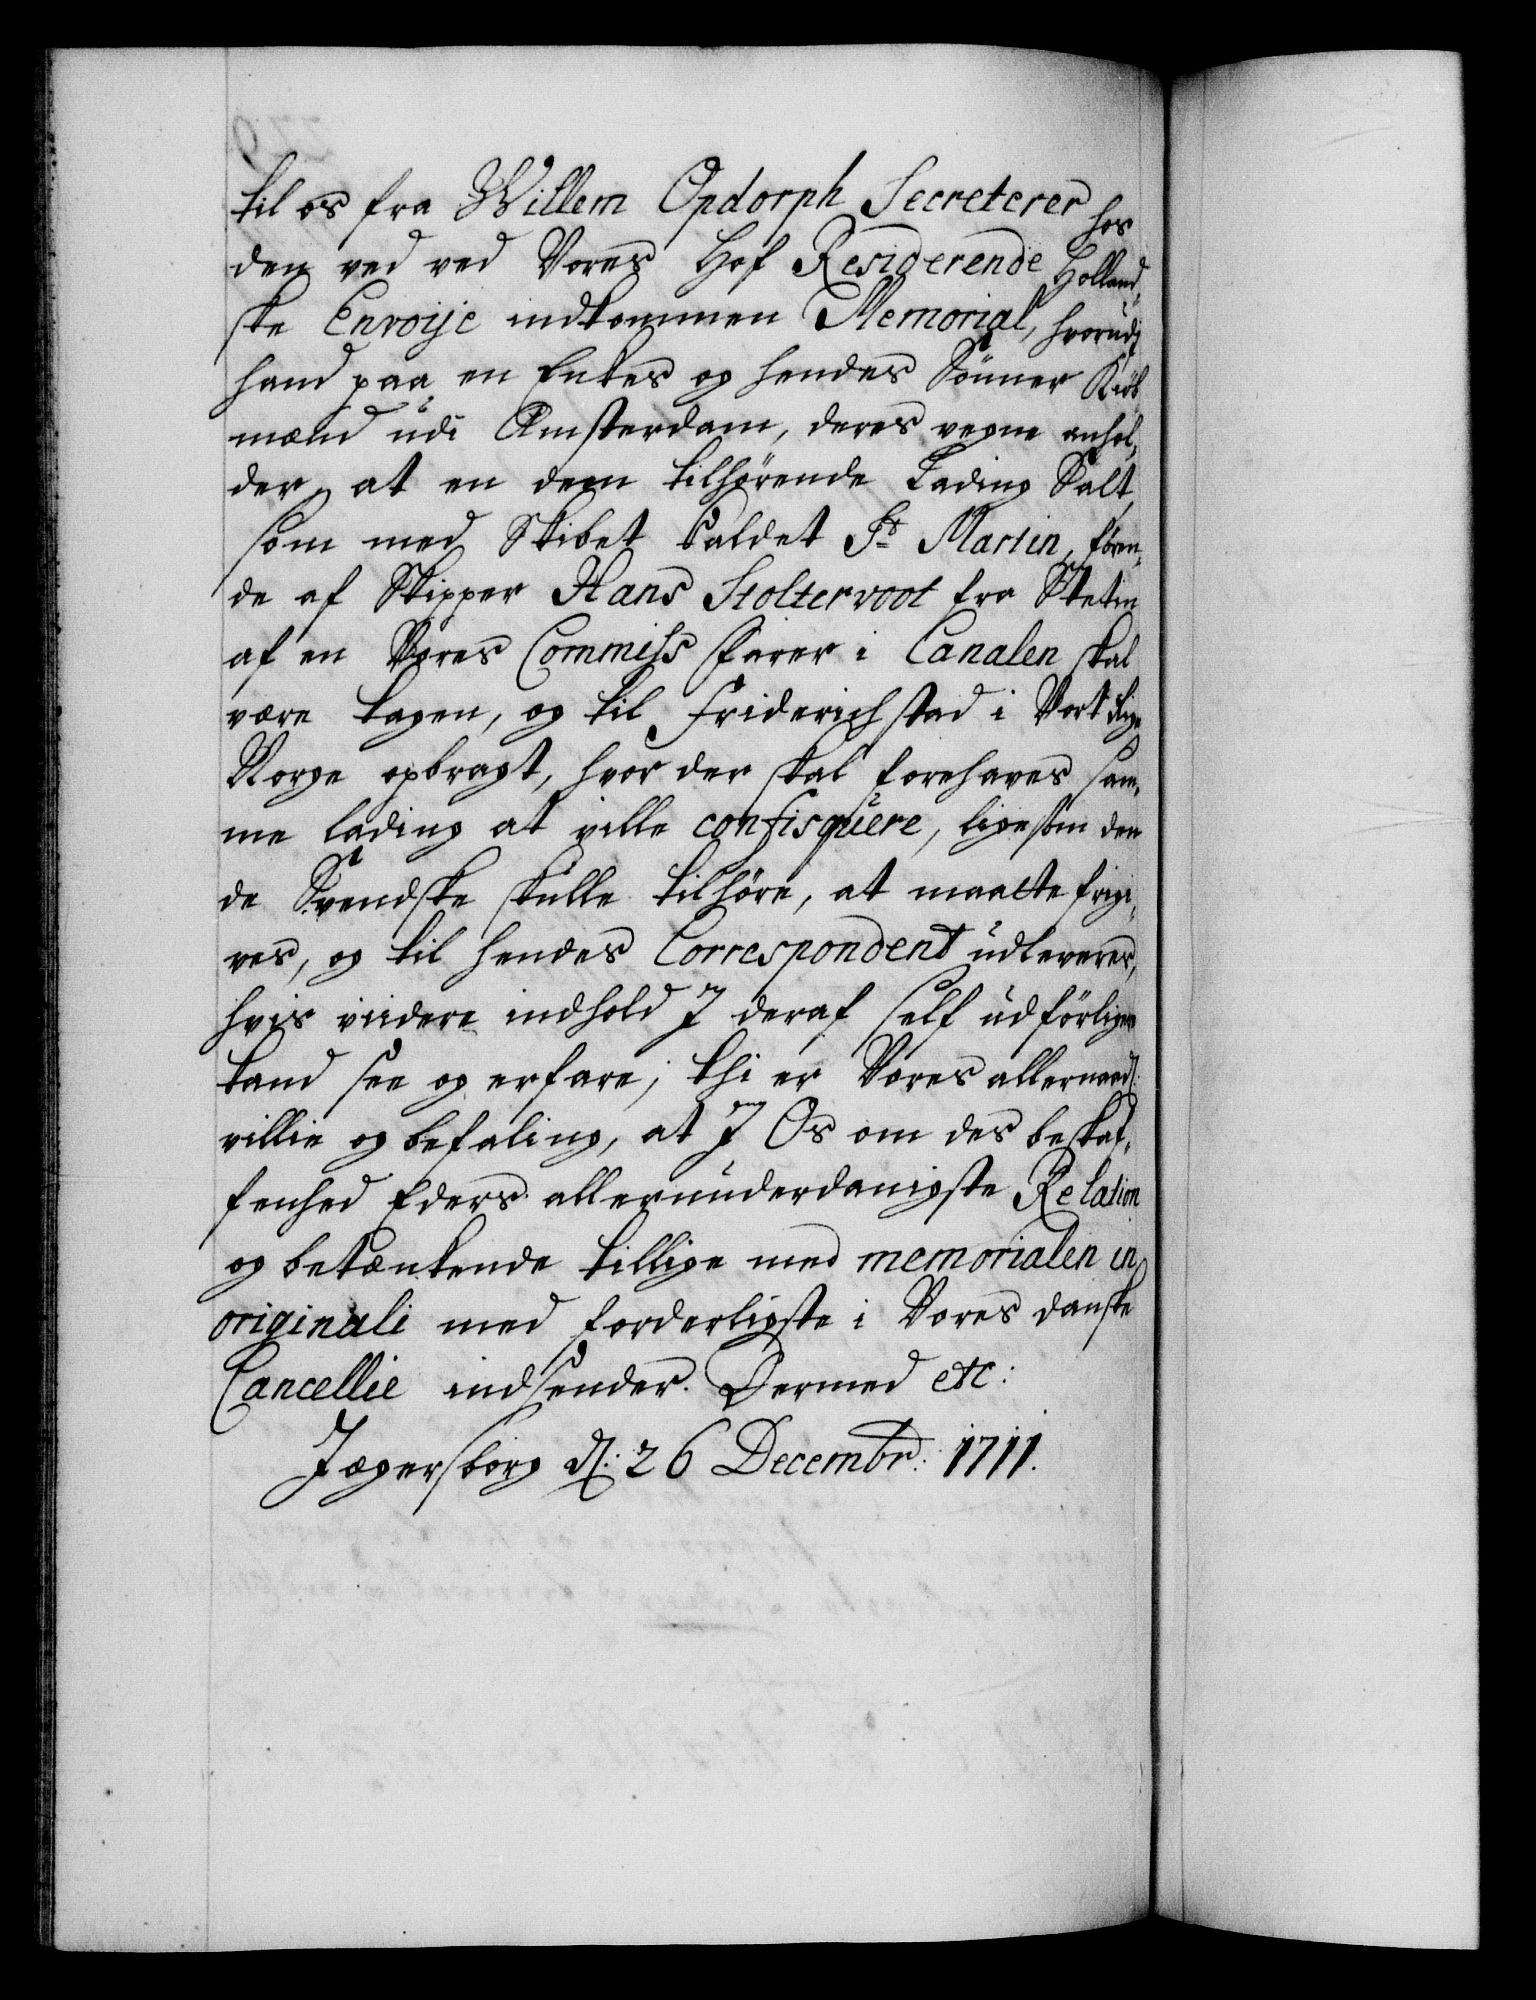 til os fra Willem Opdorph Secreterer hos
den ved ved Vores Hof Residerende Holland„
ske Envoije indkommen Memorial, hvorudj
hand paa en Enkes og hendes Sönner Kiöb„
mænd udi Amsterdam, deres vegne anhol„
der, at en dem tilhörende Lading Salt,
som med Skibet kaldet St Martin, füren„
de af Skipper Hans Stoltervoot fra Stetin
af en Vores Commiss farer i Canalen skal
være tagen, og til Friderichstad i Vort Rige
Norge opbragt, hvor der skal forehaves sam„
me lading at ville confisquere, ligesom den
de Svendske skulle tilhöre, at maatte frigi„
ves, og til hendes Correspondent udleveres,
hvis viidere indhold I deraf self udförligen
kand see og erfare; thi er Vores allernaads:
villie og befaling, at I Os om des beskaf„
fenhed Eders allerunderdanigste Relation
og betænkende tillige med memorialen in
originali med forderligste i Vores danske
Cancellie indsender. Dermed etc:
Jægersborg d: 26 Decembr: 1711.